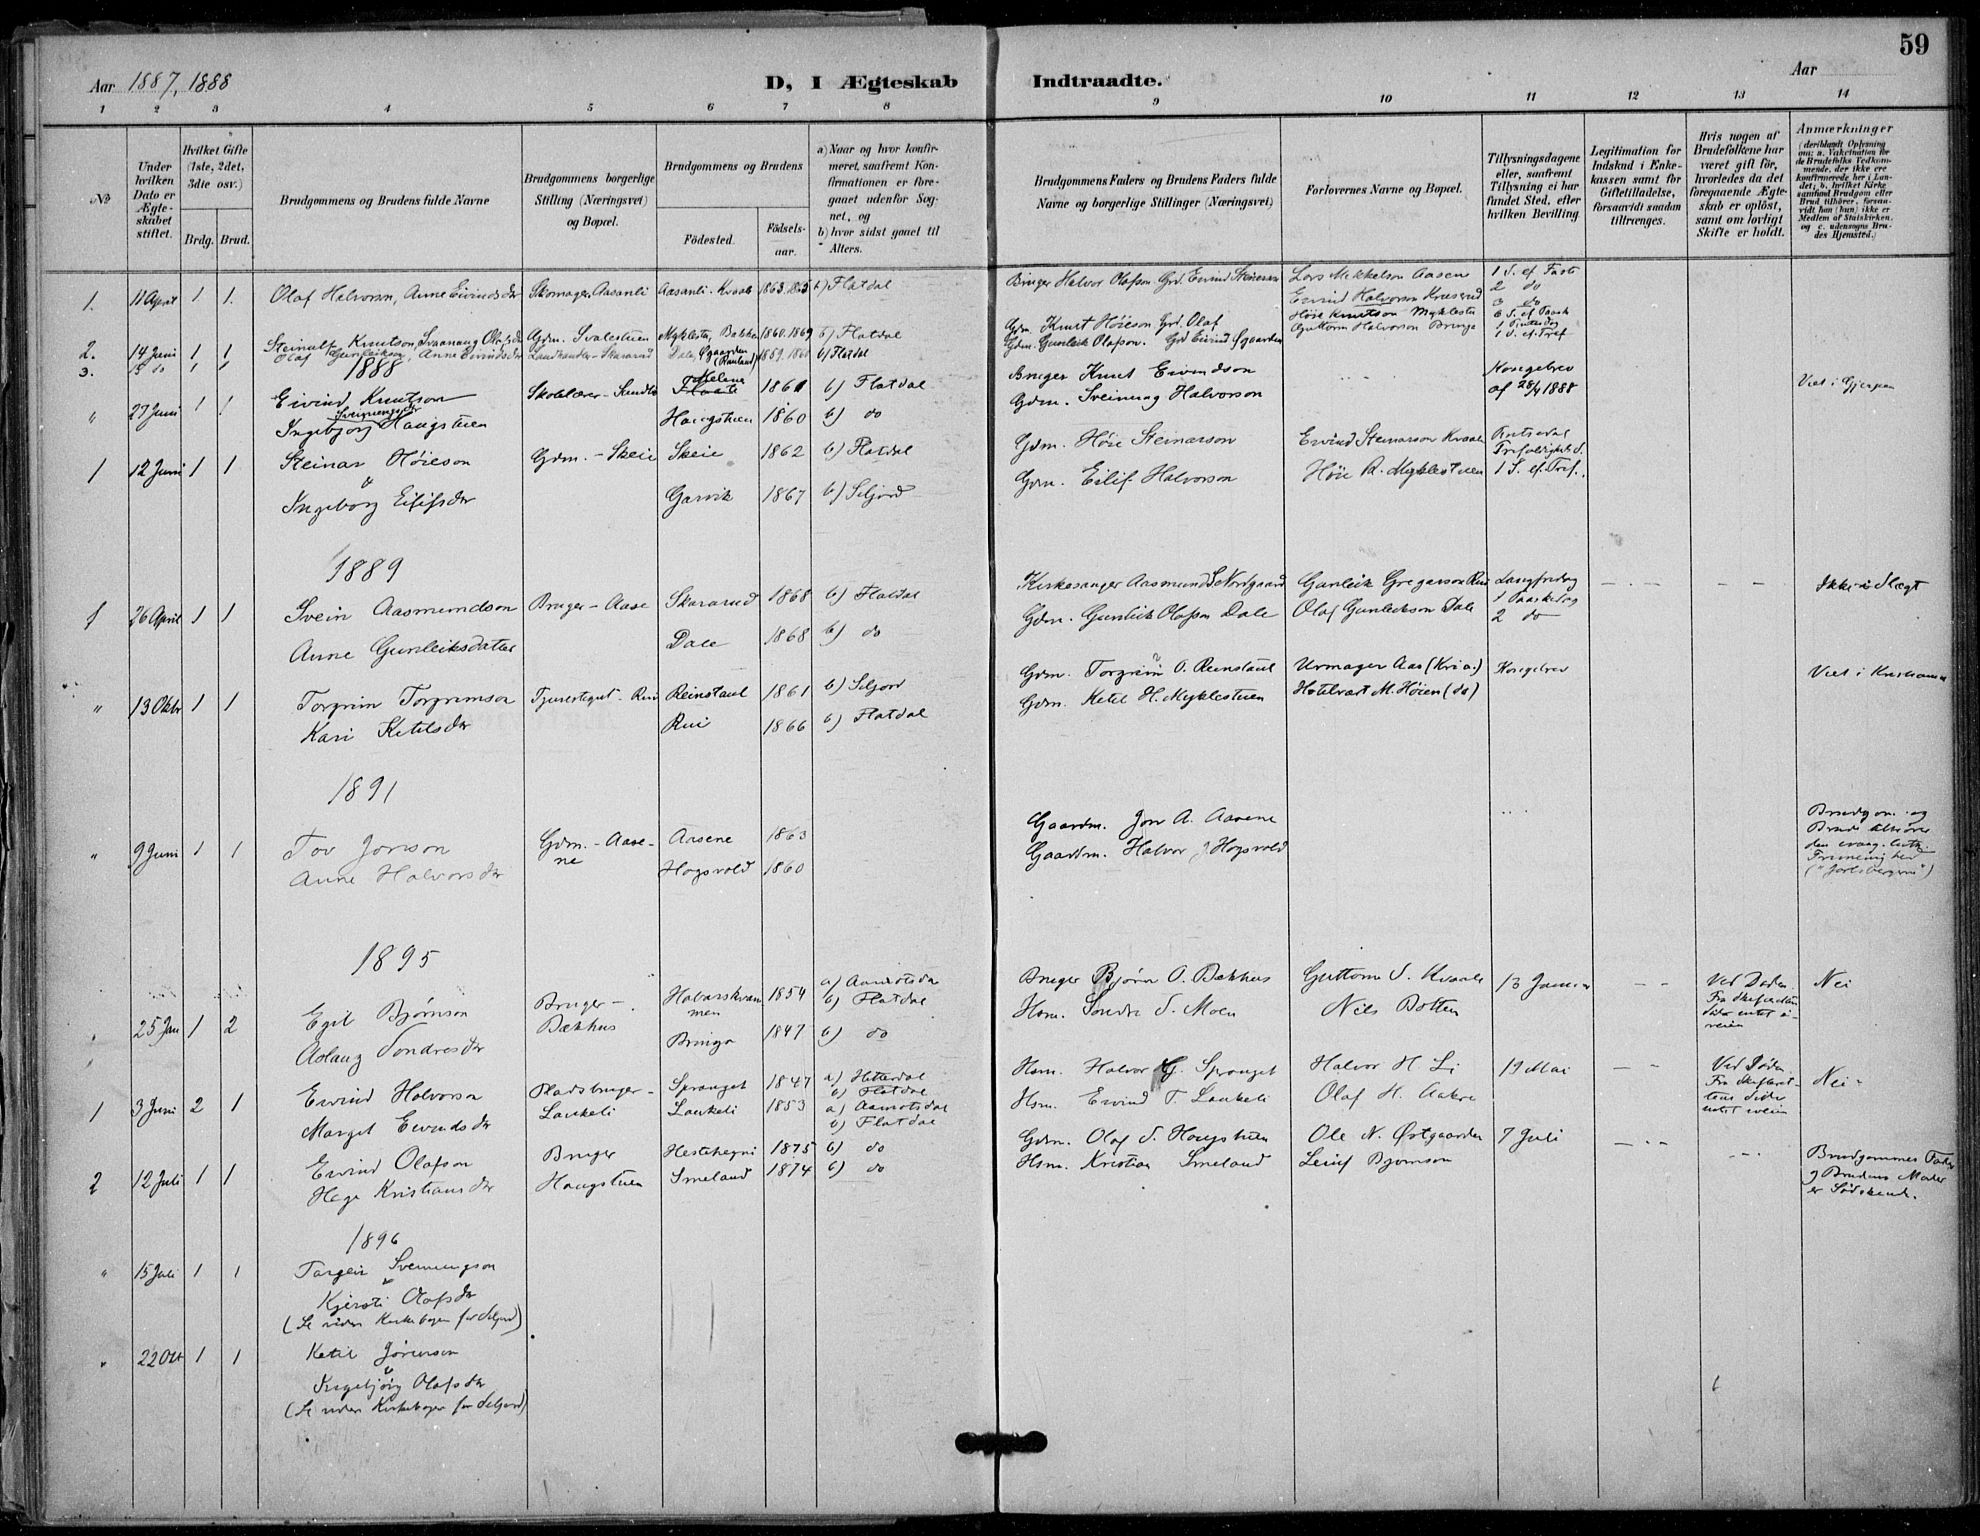 59
Aar 1887, 1888
D, I Ægteskab Indtraadte.
Aar
1 2 3 4 5 6 7 8 9 10 11 12 13 14
No
Under hvilken Dato er Ægteskabet stiftet.
Hvilket Gifte (1ste, 2det, 3die osv.)
Brdg. Brud.
Brudgommens og Brudens fulde Navne
Brudgommens borgerlige Stilling (Næringsvei) og Bopæl.
Brudgommens og Brudens
Fødested.
Fødselsaar.
a) Naar og hvor konfirmeret, saafremt Konfirmationen er foregaaet udenfor Sognet, og
b) hvor sidst gaaet til Alters.
Brudgommens Faders og Brudens Faders fulde Navne og borgerlige Stillinger (Næringsvei)
Forlovernes Navne og Bopæl.
Tillysningsdagene eller, saafremt Tillysning ei har fundet Sted, efter hvilken Bevilling.
Legitimation for Indskud i Enkekassen samt for Giftetilladelse, forsaavidt saadan tiltrænges.
Hvis nogen af Brudefolkene har været gift før, hvorledes da det foregaaende Ægteskab er opløst, samt om lovligt Skifte er holdt.
Anmærkninger (deriblandt Oplysning om: a. Vakcination for de Brudefolks Vedkommende, der ikke ere konfirmerede her i Landet; b. hvilket Kirkesamfund Brudgom eller Brud tilhører, forsaavidt han (hun) ikke er Medlem af Statskirken, og c. udensogns Brudes Hjemsted.)
1. 11 April 1 1. Olaf Halvorson, Anne Eivindsdr Skomager Aasanli Aasanli - Kvaale 1863. 1865 b) Flatdal Bruger Halvor Olafson Lars Mikkelson Aasen 1 S. ef. Faste
Eivind Halvorson 2 do
3 do
2. 14 Juni 1 1 Knutson, Olafsdr Gdm. Svalestuen Myklestu, Bakken 1860. 1869 b) Flatdal Gdm. Knut Høieson Grd. Olaf Høie Knutson Myklestu
3. 15 do 1 1 Olaf Gunleikson, Anne Eivindsdr Dale, Øgaarden (Rauland) 1859. b) Flatdal Gdm. Gunleik Olafson. Grd Eivind Øgaarden Guttorm Halvorson Bringe
1888
" 27 Juni 1 1 Eivind Knutson Skolelærer - 1861 b) Flatdal Bruger Knut Eivindson Kongebrev Viet i Gjerpen
Sveinungsdr
Ingebjørg Haugstuen Haugstuen 1860 b) do Gdm. Sveinung Halvorson af 28/4 1888
1 12 Juni 1 1 Steinar Høieson Gdm. - Skeie Skeie 1862 b) Flatdal Gdm. Høie Steinarson Eivind Steinarson Kvaale
Ingeborg Eilifsdr Garvik 1867 b) Seljord Gdm. Eilif Halvorson Høie Myklestuen 1 S. ef. Tref.
1889
1 26 April 1 1 Svein Aasmundson Bruger - Aase Skararud 1868 b) Flatdal Kirkesanger Aasmund S Nordgaard Gunleik Gregarson Rui Langfredag — — Ikke i Slægt
Anne Gunleiksdatter Dale 1868 b) do Gdm. Gunleik Olafson Dale Olaf Gunleikson Dale 1 Paaskedag
2 do
" 13 Oktbr 1 1 Torgrim Torgrimson Tjenestegut - Rui Reinstaul 1861 b) Seljord Gdm. Torgrim O. Reinstaul Urmager Aas (Kria.) Kongebrev Viet i Kristiania
Kari Ketilsdr Rui 1866 b) Flatdal Gdm. Ketil H. Myklestuen Hotelvært M. Høien (do)
1891
" 9 Juni 1 1 Tov Jonson Gdm. - Aasene Aasene 1863 Gaardm. Jon A. Aasene Brudgom og
Anne Halvorsdr Hogsvold 1860 Gaardm. Halvor J Hogsvold Brud tilhører
den evang. luth.
Frimenighed
1895
25 Jan 1 2 Egil Bjørnson Bruger - Bækhus 1854 a) Aamotsdal b) Flatdal Bruger Bjørn O. Bækhus Guttorm S. Kvaale 13 Januar — — Ved Døden Nei
Aslaug Sondresdr Bringa 1847 b) do Hsm. Sondre S. Moen Nils Botten
1 3 Juni 2 1 Eivind Halvorson Pladsbruger - Laukeli Spranget 1847 a) Hitterdal b) Flatdal Hsm. Halvor G. Spranget Halvor H. Li 19 Mai — — Ved Døden Nei
Marget Eivindsdr Laukeli 1853 a) Aamotsdal b) Flatdal Hsm. Eivind T. Laukeli Olaf H. Aakre
2 12 Juli 1 1 Eivind Olafson Bruger Hestehegni 1875 b) do Gdm. Olaf S. Haugstuen Ole N. Østgaarden 7 Juli — Brudgommes Fader
Hæge Kristiansdr Haugstuen Smeland 1874 b) do Hsm. Kristian Smeland Leiuf Bjørnson og Brudens Moder
er Sødskend.
1896
" 15 Juli 1 1 Targeir Sveinungson
Kjersti Olafsdr
(Se videre Kirkebogen for Seljord)
" 22 Okt 1 1 Ketil Jørenson
Ingebjørg Olafsdr
(Se videre Kirkebogen for Seljord)